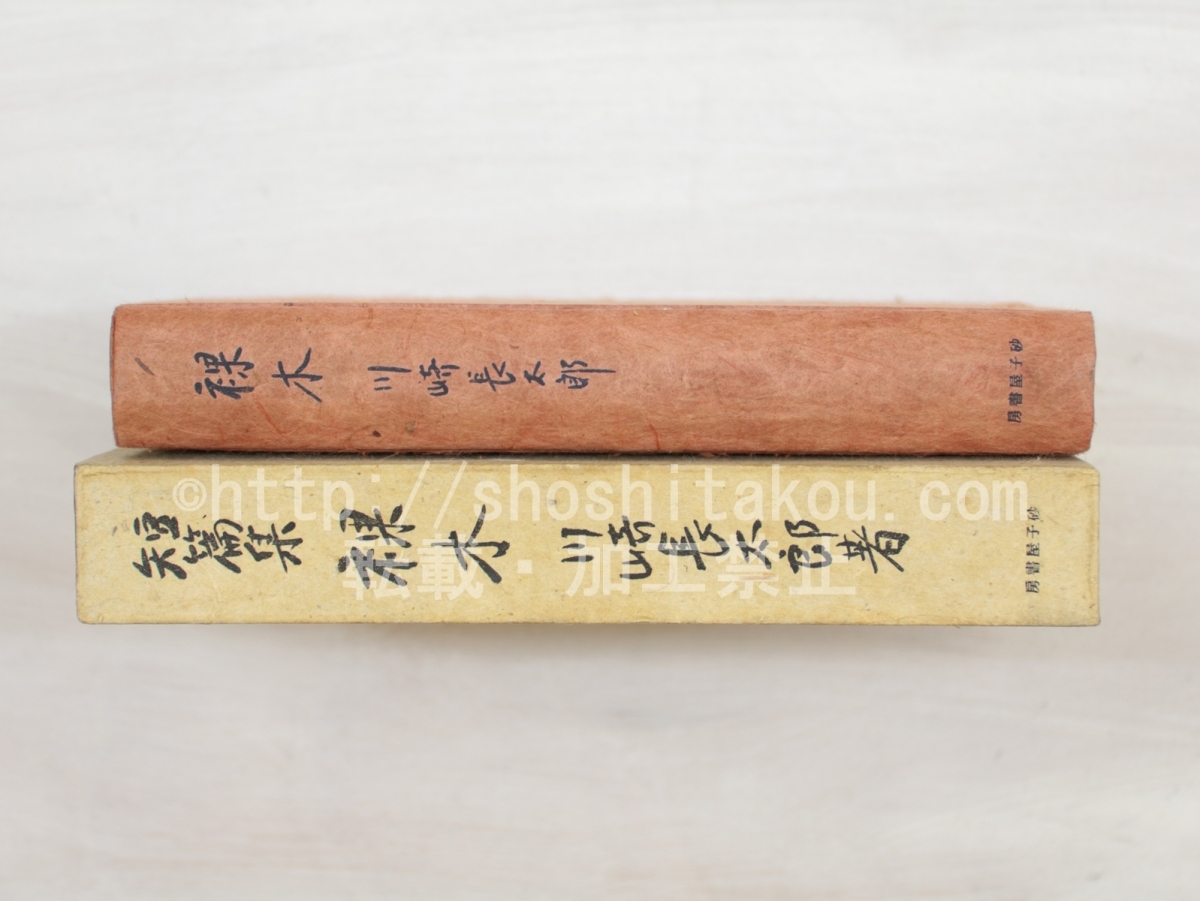 裸木 川崎長太郎
砂子屋書房
短篇集 裸木 川崎長太郎著
砂子屋書房
©http://shoshitakou.com
転載・加工禁止